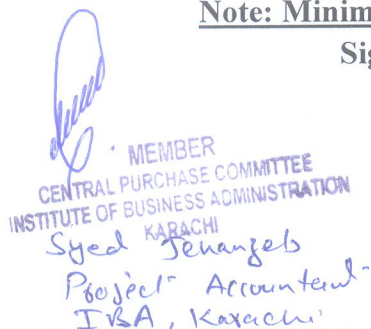 Note: Minim
Sig
MEMBER
CENTRAL PURCHASE COMMITTEE
INSTITUTE OF BUSINESS ADMINISTRATION
KARACHI
Syed Jehanzeb
Project Accountant
IBA, Karachi